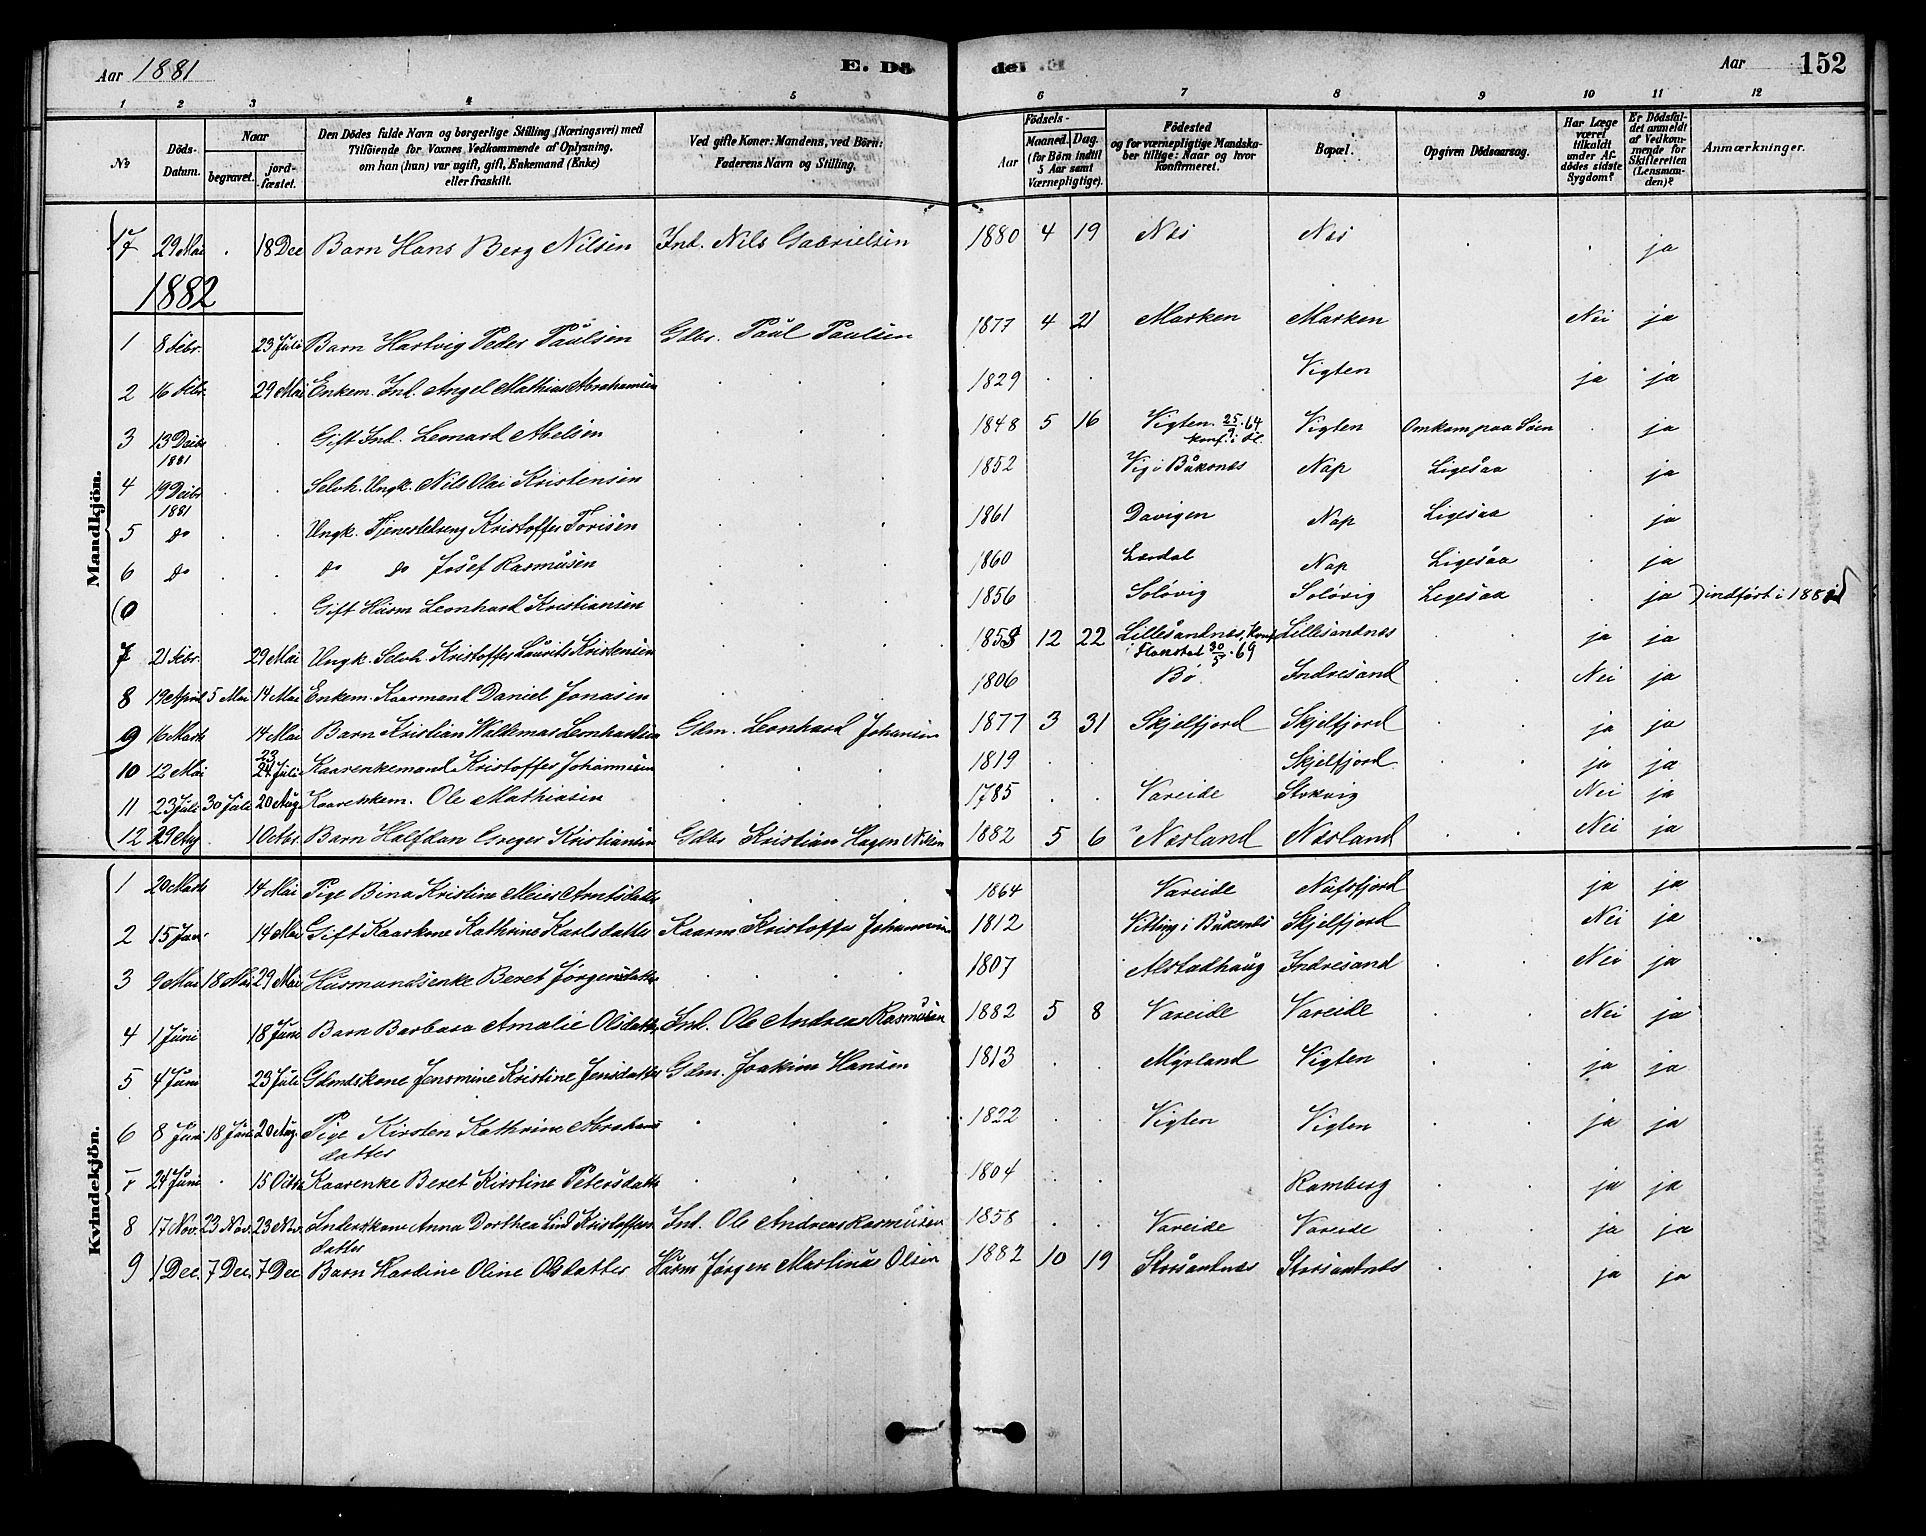 Aar 1881 E. Dö de. Aar 152
1 2 3 4 5 6 7 8 9 10 11 12
No
Döds-Datum.
Naar
begravet.
jord-fæstet.
Den Dödes fulde Navn og borgerlige Stilling (Næringsvei) med
Tilföiende for Voxnes Vedkommende af Oplysning,
om han (hun) var ugift, gift, Enkemand (Enke)
eller fraskilt.
Ved gifte Koner: Mandens, ved Börn:
Faderens Navn og Stilling.
Födsels-
Aar
Maaned. Dag.
(for Börn indtil
5 Aar samt
Værnepligtige).
Födested
og for værnepligtige Mandska-
ber tillige: Naar og hvor
konfirmeret.
Bopæl.
Opgiven Dödsaarsag.
Har Læge
været
tilkaldt
under Af-
dödes sidste
Sygdom?
Er Dödsfal-
det anmeldt
af Vedkom-
mende for
Skifteretten
(Lensman-
den)?
Anmærkninger.
Mandkjön.
17 29 Mai . 18 Dec Barn Hans Berg Nilsen Ind. Nils Gabrielsen 1880 4 19 Næs Næs . . ja
1882
1 8 Febr. 23 Juli Barn Hartvig Peder Paulsen Gdbr. Paul Paulsen 1877 4 21 Marken Marken Nei ja
2 16 Febr. 29 Mai Enkem. Ind. Angel Mathias Abrahamsen 1829 . . Vigten ja ja
3 13 Decbr 1881 . . Gift Ind. Leonard Abelsen 1848 5 16 Vigten. 25/9. 64 konf. i Vigten Omkom paa Söen . ja
4 19 Decbr 1881 . . Selvh. Ungk. Nils Olai Kristensen 1852 Vig i Buksnæs Nap Ligesaa . ja
5 do . . Ungk. Tjenestedreng Kristoffer Torisen 1861 Davigen Nap Ligesaa . ja
6 do . . do do Josef Rasmusen 1860 Lærdal Nap Ligesaa . ja
(0 . . Gift Husm Leonhard Kristiansen 1856 Solövig Solövig Ligesaa . ja indfört i 1881)
7 21 Febr. 29 Mai Ungk. Selvh. Kristoffer Laurits Kristensen 1853 12 22 Lillesandnes, Konf i Flakstad 30/5. 69 Lillesandnes ja ja
8 19 April 5 Mai 14 Mai Enkem. Kaarmand Daniel Jonasen 1806 Bö. Indresand Nei ja
9 16 Marts 14 Mai Barn Kristian Waldemar Leonhardsen Gdm. Leonhard Johansen 1877 3 31 Skjelfjord Skjelfjord ja ja
10 12 Mai 23 24 Juli Kaarenkemand Kristoffer Johannesen 1819 . . Skjelfjord ja ja
11 23 Juli 30 Juli 20 Aug. Kaarenkem. Ole Mathiasen 1785 . . Vareide Stokvig Nei ja
12 29 Aug 1 Octbr. Barn Halfdan Greger Kristiansen Gdbr Kristian Hagen Nilsen 1882 5 6 Næsland Næsland Nei ja
Kvindekjön.
1 20 Marts 14 Mai Pige Bina Kristine Meier Arntsdatter 1864 Vareide Nufsfjord ja ja
2 15 Jan. 14 Mai Gift Kaarkone Kathrine Karlsdatter Kaarm Kristoffer Johannesen 1812 Vitting i Buksnæs Skjelfjord Nei ja
3 9 Mai 18 Mai 29 Mai Husmandsenke Beret Jörgensdatter 1807 Alstadhaug Indresand Nei ja
4 1 Juni 18 Juni Barn Barbara Amalie Olsdatter Ind. Ole Andreas Rasmusen 1882 5 8 Vareide Vareide Nei ja
5 4 Juni 23 Juli Gdmdskone Jensmine Kristine Jensdatter Gdm. Joakim Hansen 1813 . . Myrland Vigten ja ja
6 8 Juni 18 Juni 20 Aug. Pige Kirsten Kathrine Abrahams
datter 1822 . . Vigten Vigten ja ja
7 24 Juni . 15 Octbr Kaarenke Beret Kirstine Petersdatter 1804 . . Ramberg ja ja
8 17 Nov. 23 Nov. 23 Nov. Inderskone Anna Dorthea Lind Kristoffers
datter Ind. Ole Andreas Rasmusen 1858 . . Vareide Vareide ja ja
9 1 Dec. 7 Dec. 7 Dec Barn Hardine Oline Olsdatter Husm Jörgen Martinus Olsen 1882 10 19 Storsandnæs Storsandnæs ja ja